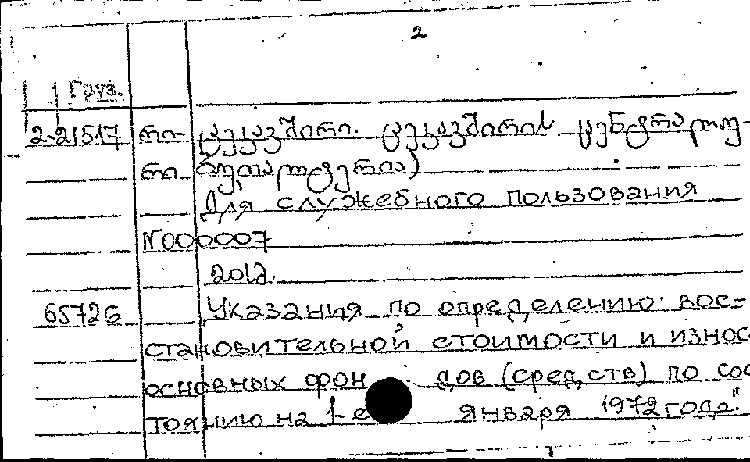 2
Груз.
2-21517 რი. ცეკავშირი. ცეკავშირის ცენტრალუ-
რი ბუღალტერია)
Для служебного пользования
N000007
65726 Указания по определению вос-
становительной стоимости и износ
основных фон дов (средств) по сос
тоянию на 1-е января 1972 года".